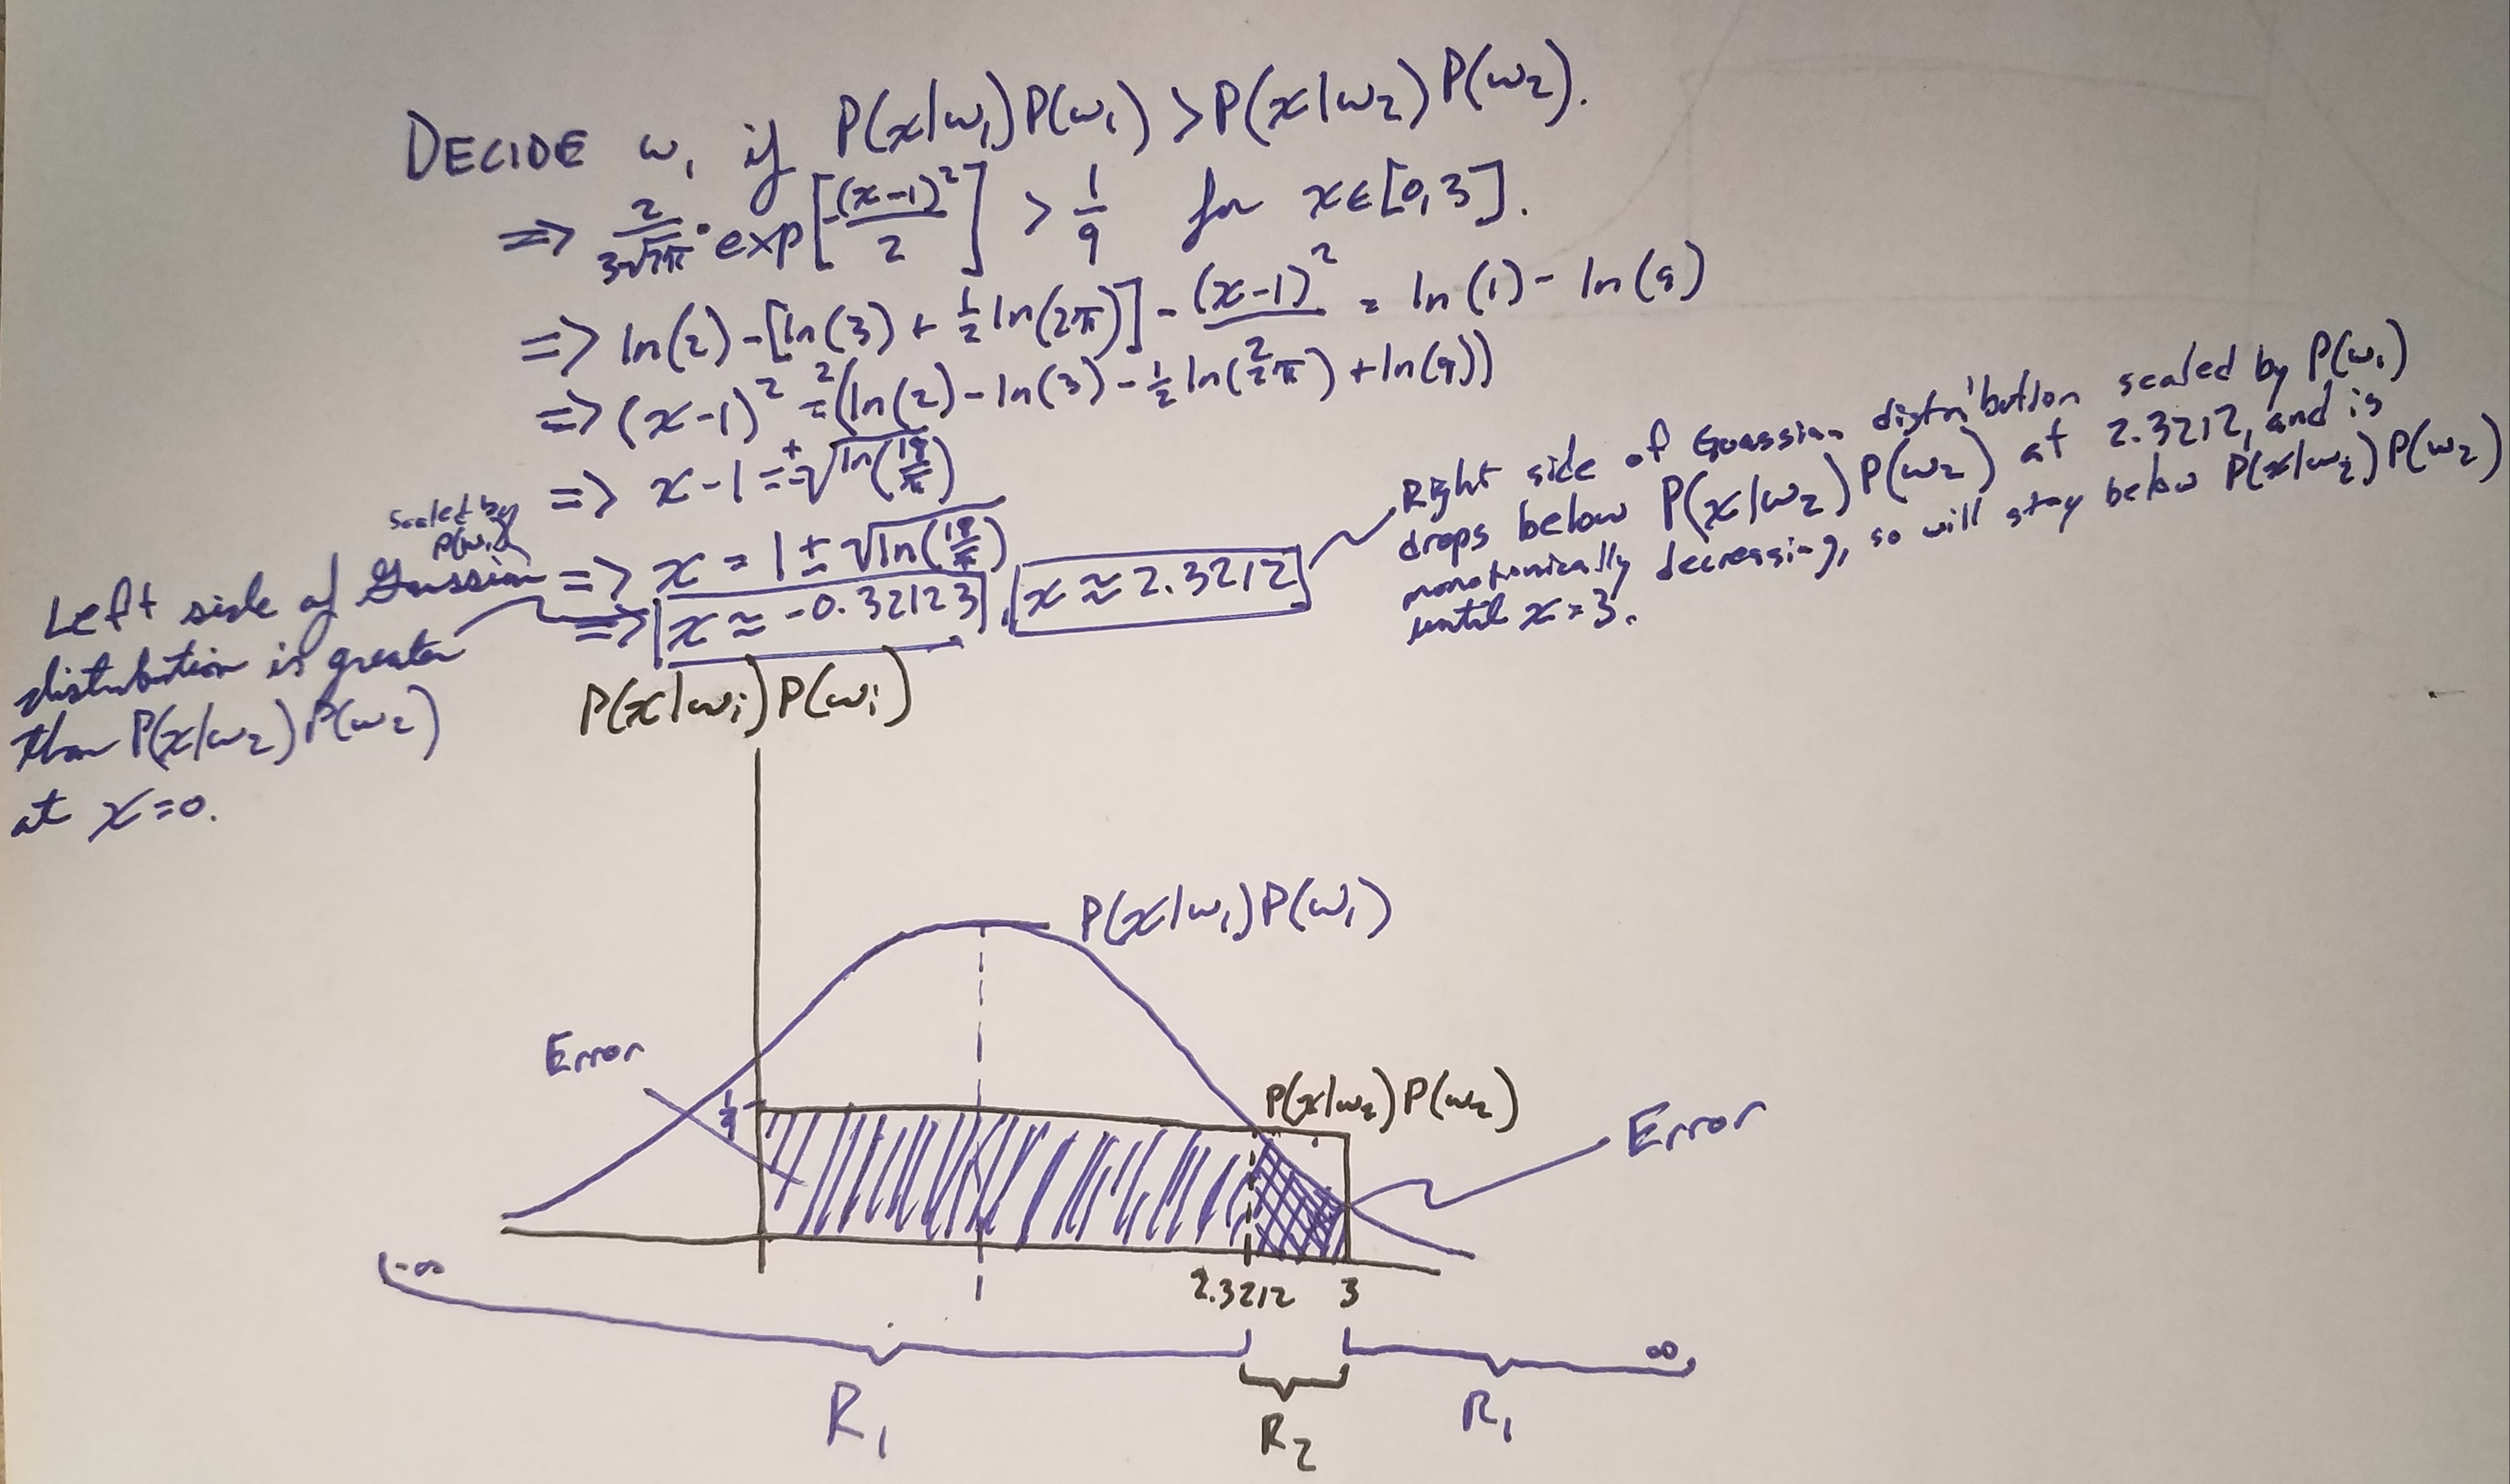 DECIDE ω₁ if P(x|ω₁)P(ω₁) > P(x|ω₂)P(ω₂).
=> 2/(3√2π) · exp[-(x-1)²/2] > 1/9 for x∈[0,3].
=> ln(2) - [ln(3) + ½ ln(2π)] - (x-1)²/2 = ln(1) - ln(9)
=> (x-1)² = 2(ln(2) - ln(3) - ½ ln(2π) + ln(9))
=> x-1 = ±√ln(18/π)
=> x = 1 ± √ln(18/π)
=> x ≈ -0.32123, x ≈ 2.3212
Left side of Gaussian
scaled by
P(ω₁)
distribution is greater
than P(x|ω₂)P(ω₂)
at x=0.
Right side of Guassian distribution scaled by P(ω₁)
drops below P(x|ω₂)P(ω₂) at 2.3212, and is
monotonically decreasing, so will stay below P(x|ω₂)P(ω₂)
until x=3.
P(x|ωᵢ)P(ωᵢ)
P(x|ω₁)P(ω₁)
Error
1/9
P(x|ω₂)P(ω₂)
Error
-∞
1
2.3212
3
∞
R₁
R₂
R₁